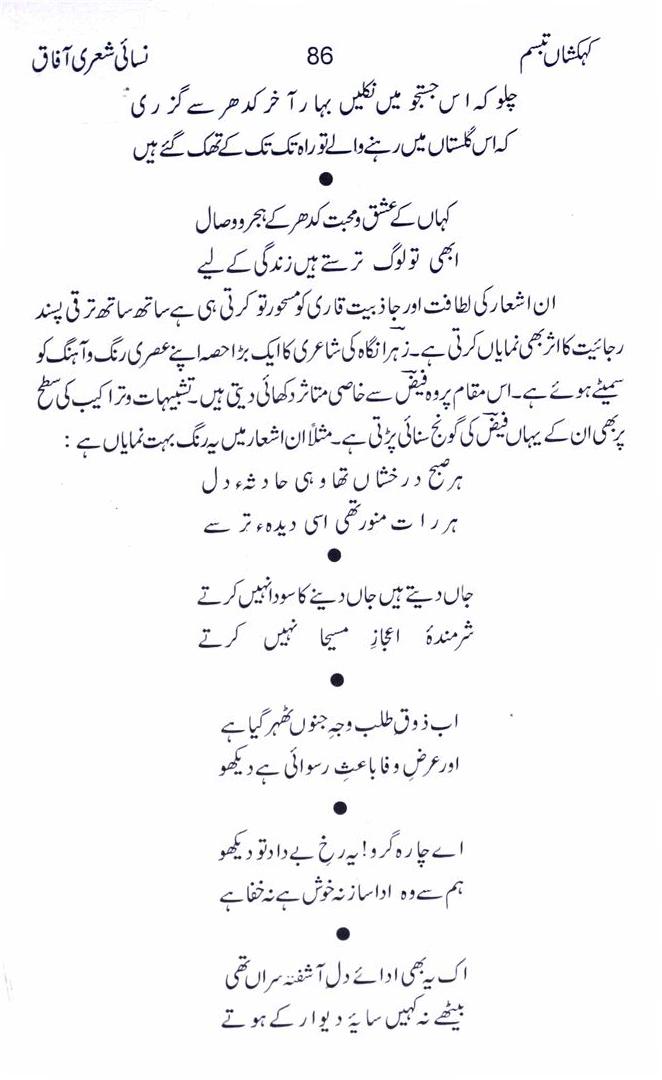 کہکشاں تبسم 86 نسائی شعری آفاق
چلو کہ اس جستجو میں نکلیں بہار آخر کدھر سے گزری
کہ اس گلستاں میں رہنے والے تو راہ تک تک کے تھک گئے ہیں
●
کہاں کے عشق و محبت کدھر کے ہجر و وصال
ابھی تو لوگ ترستے ہیں زندگی کے لیے
ان اشعار کی لطافت اور جاذبیت قاری کو مسحور تو کرتی ہی ہے ساتھ ساتھ ترقی پسند
رجائیت کا اثر بھی نمایاں کرتی ہے۔ زہرا نگاہ کی شاعری کا ایک بڑا حصہ اپنے عصری رنگ و آہنگ کو
سمیٹے ہوئے ہے۔ اس مقام پر وہ فیضؔ سے خاصی متاثر دکھائی دیتی ہیں۔ تشبیہات و تراکیب کی سطح
پر بھی ان کے یہاں فیضؔ کی گونج سنائی پڑتی ہے۔ مثلاً ان اشعار میں یہ رنگ بہت نمایاں ہے :
ہر صبح درخشاں تھا وہی حادثہء دل
ہر رات منور تھی اسی دیدہء تر سے
●
جاں دیتے ہیں جاں دینے کا سودا نہیں کرتے
شرمندۂ اعجازِ مسیحا نہیں کرتے
●
اب ذوقِ طلب وجہِ جنوں ٹھہر گیا ہے
اور عرضِ وفا باعثِ رسوائی ہے دیکھو
●
اے چارہ گرو! یہ رخِ بے داد تو دیکھو
ہم سے وہ اداساز نہ خوش ہے نہ خفا ہے
●
اک یہ بھی ادائے دلِ آشفتہ سراں تھی
بیٹھے نہ کہیں سایۂ دیوار کے ہوتے